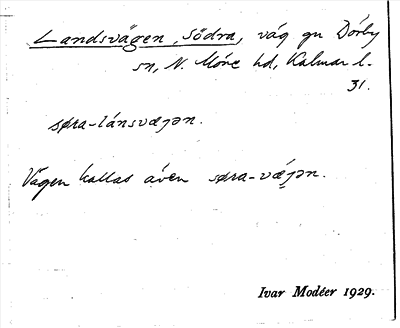 Landsvägen, Södra, väg gm Dörby
sn, N. Möre hd, Kalmar l.
31.
søra-lánsvæȷən.
Vägen kallas även søra-vǽȷən.
Ivar Modéer 1929.